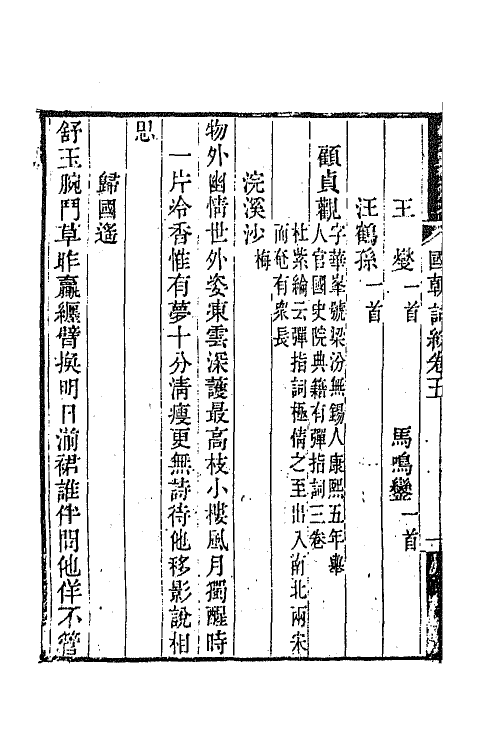 國朝詞綜卷五　一
王　燮一首　馬鳴鑾一首
汪鶴孫一首
顧貞觀字華峯號梁汾無錫人康熙五年舉
人官國史院典籍有彈指詞三卷
杜紫綸云彈指詞極情之至出入南北兩宋
而奄有衆長
浣溪沙梅
物外幽情世外姿東雲深護最高枝小樓風月獨醒時
一片冷香惟有夢十分清瘦更無詩待他移影說相
思
歸國遙
舒玉腕鬥草昨贏纏臂換明日湔裙誰伴問他佯不管